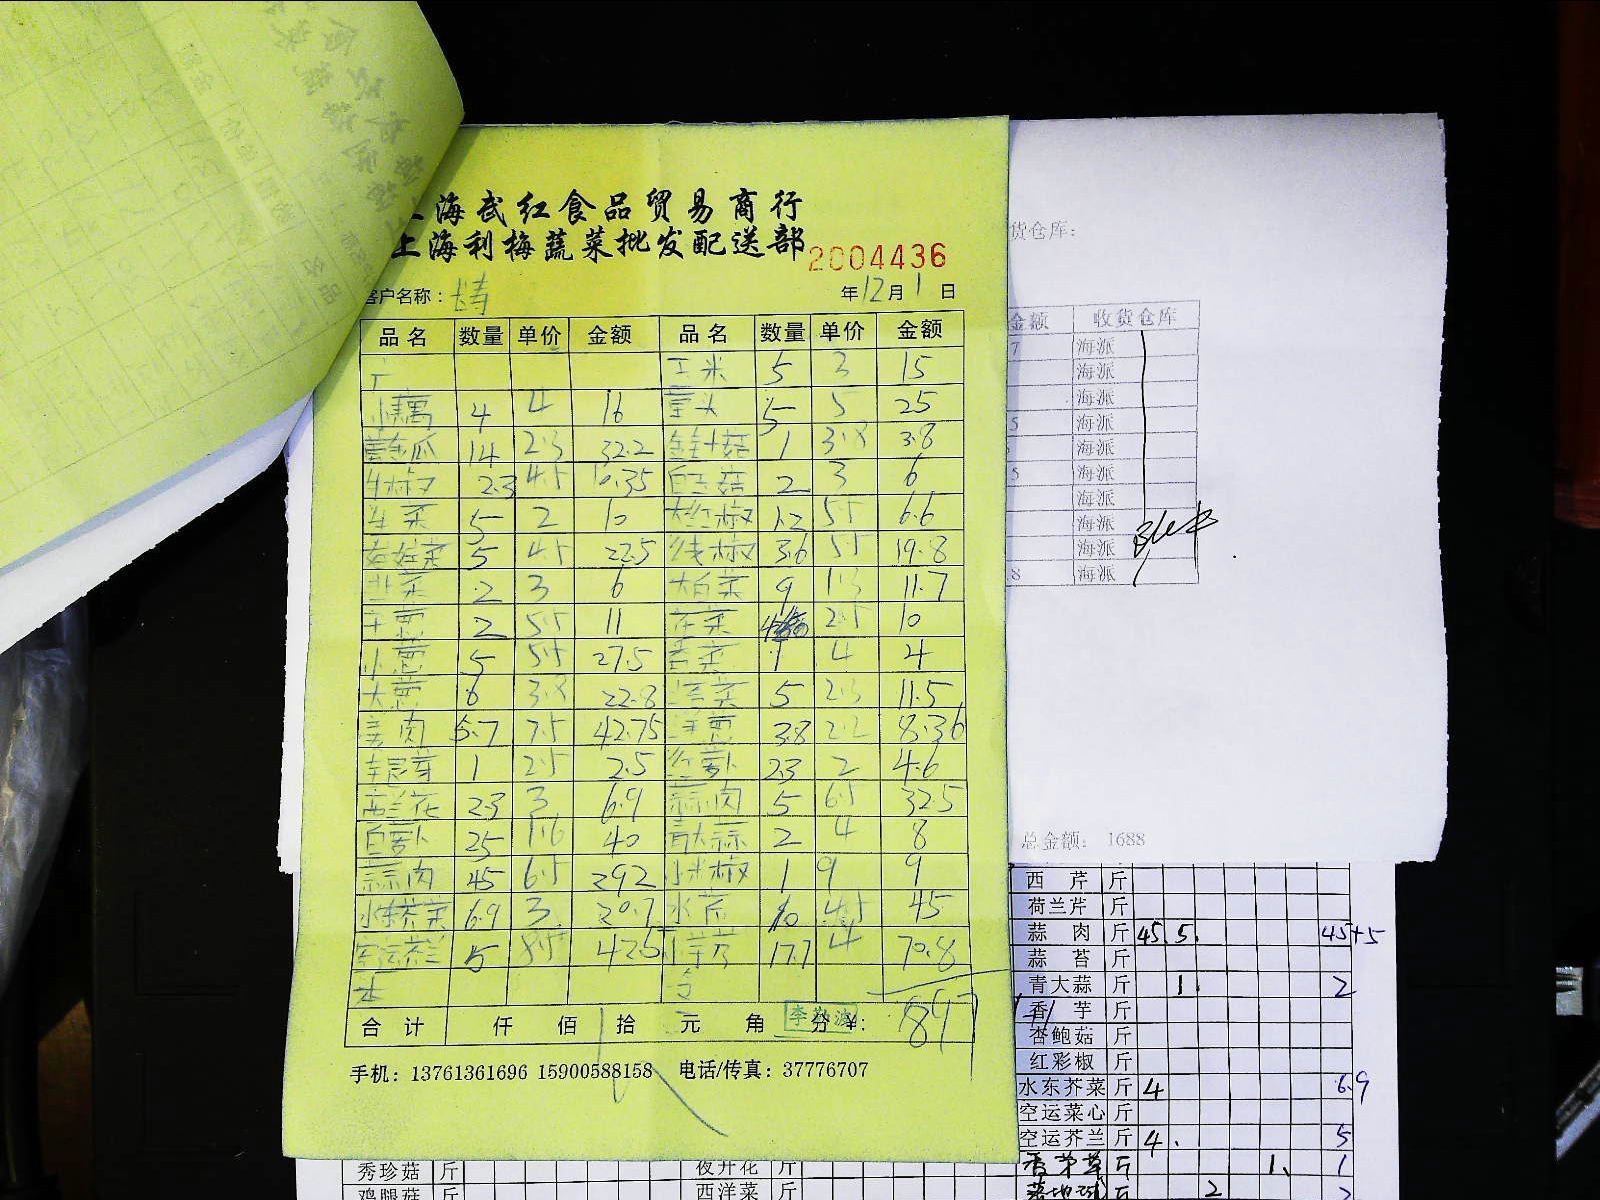 上海武红食品贸易商行
上海利梅蔬菜批发配送部
2004436
客户名称：
年12月1日
品名 数量 单价 金额 品名 数量 单价 金额
玉米 5 3 15
4 4 16 5 5 25
黄金瓜 14 2.3 32.2 金针菇 1 3.8 3.8
2.3 4.5 10.35 白玉菇 2 3 6
生菜 5 2 10 大红椒 1.2 5.5 6.6
娃娃菜 5 4.5 22.5 线椒 3.6 5.5 19.8
韭菜 2 3 6 大白菜 9 1.3 11.7
2 5.5 11 花菜 2.5 10
小葱 5 5.5 27.5 香菜 1 4 4
大葱 6 3.8 22.8 5 2.3 11.5
姜肉 5.7 7.5 42.75 洋葱 3.8 2.2 8.36
1 2.5 2.5 红萝卜 2.3 2 4.6
西兰花 2.3 3 6.9 蒜肉 5 6.5 32.5
白萝卜 25 1.6 40 青大蒜 2 4 8
蒜肉 45 6.5 292 小米椒 1 9 9
水东芥菜 6.9 3 20.7 水芹 10 4.5 45
空运芥兰 5 8.5 42.5 小芋艿 17.7 4 70.8
合计 仟 佰 拾 元 角 分 ¥: 897
手机：13761361696 15900588158 电话/传真：37776707
货仓库：
金额 收货仓库
7 海派
海派
海派
5 海派
海派
5 海派
海派
海派
海派
8 海派
总金额： 1688
西芹 斤
荷兰芹 斤
蒜肉 斤 45. 5. 45+5
蒜苔 斤
青大蒜 斤 1. 2
香芋 斤
杏鲍菇 斤
红彩椒 斤
水东芥菜 斤 4 6.9
空运菜心 斤
空运芥兰 斤 4. 5
香茅草 斤 1、 1
斤 2 2
秀珍菇 斤 夜开花 斤
鸡腿菇 斤 西洋菜 斤